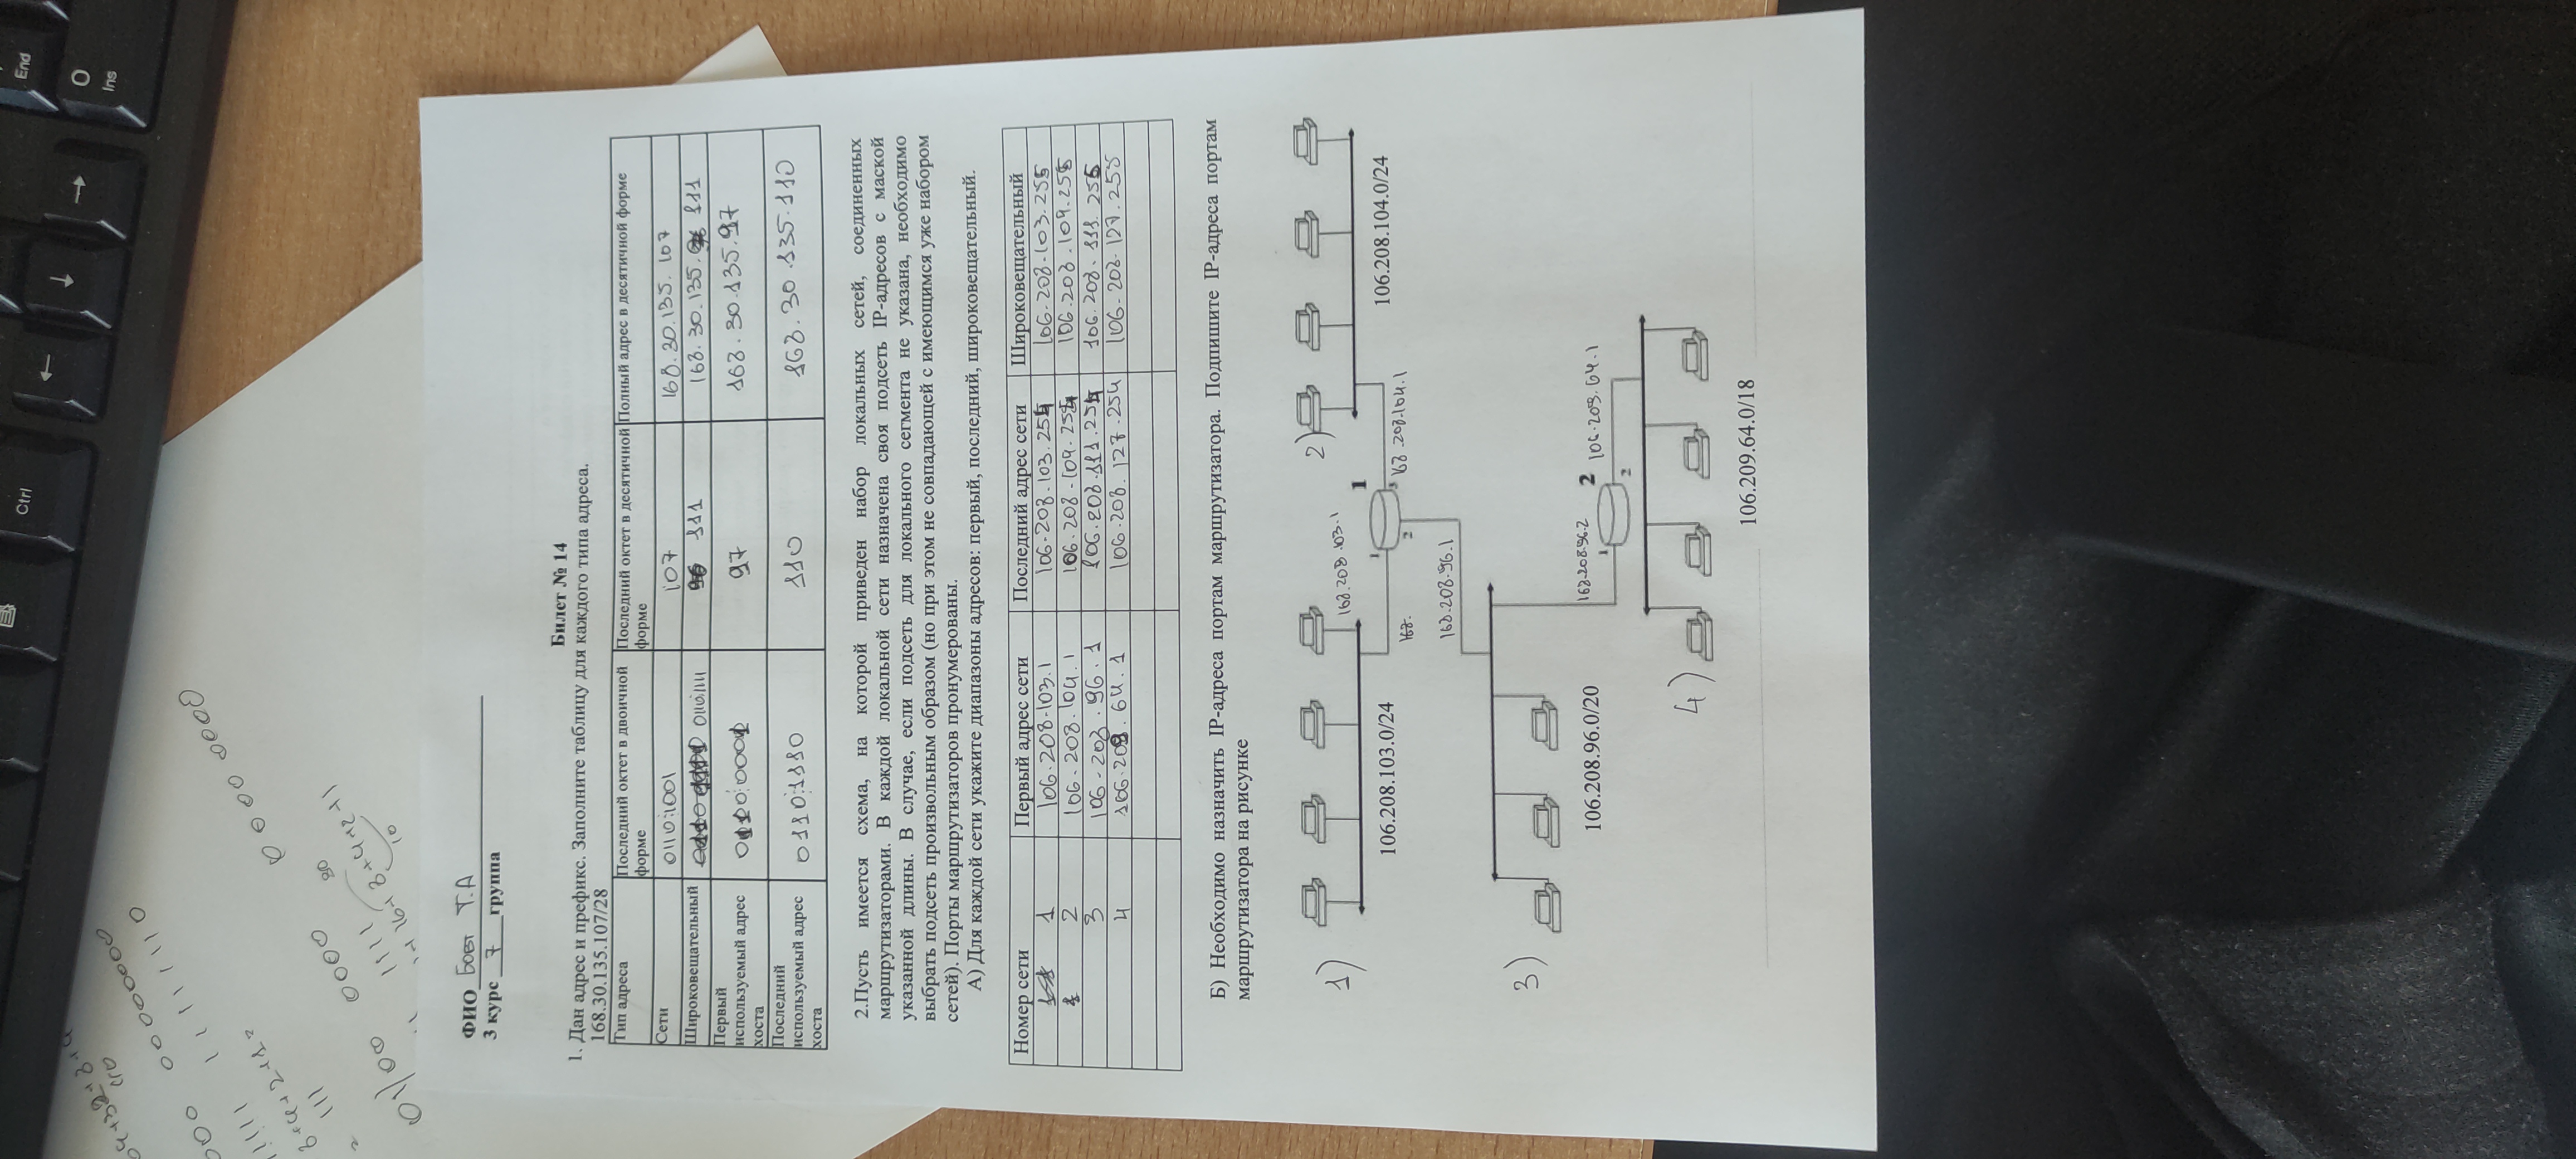 Ctrl
End
0
Ins
64+32+8+4
110
000 00000000
11111 1111110
8+4+2+1=
= 111
01/00 0000 0000 0000
1111 30
16+8+4+2+1
10
ФИО Бовт Т.А
3 курс 7 группа
Билет № 14
1. Дан адрес и префикс. Заполните таблицу для каждого типа адреса.
168.30.135.107/28
Тип адреса Последний октет в двоичной форме Последний октет в десятичной форме Полный адрес в десятичной форме
Сети 0110:1001 107 168.30.135.107
Широковещательный 0110:1111 111 168.30.135. 111
Первый используемый адрес хоста 0110:0001 97 168.30.135.97
Последний используемый адрес хоста 0110:1110 110 168.30.135.110
2.Пусть имеется схема, на которой приведен набор локальных сетей, соединенных
маршрутизаторами. В каждой локальной сети назначена своя подсеть IP-адресов с маской
указанной длины. В случае, если подсеть для локального сегмента не указана, необходимо
выбрать подсеть произвольным образом (но при этом не совпадающей с имеющимся уже набором
сетей). Порты маршрутизаторов пронумерованы.
А) Для каждой сети укажите диапазоны адресов: первый, последний, широковещательный.
Номер сети Первый адрес сети Последний адрес сети Широковещательный
1 106.208.103.1 106.208.103.254 106.208.103.255
2 106.208.104.1 106.208.104.254 106.208.104.255
3 106.208.96.1 106.208.111.254 106.208.111.255
4 106.209.64.1 106.208.127.254 106.208.127.255
Б) Необходимо назначить IP-адреса портам маршрутизатора. Подпишите IP-адреса портам
маршрутизатора на рисунке
1) 2)
168.208.103.1
1
106.208.103.0/24 1 3 106.208.104.0/24
168. 2 168.208.104.1
168.208.96.1
3)
106.208.96.0/20
168.208.96.2 2 106.209.64.1
1
2
4)
106.209.64.0/18